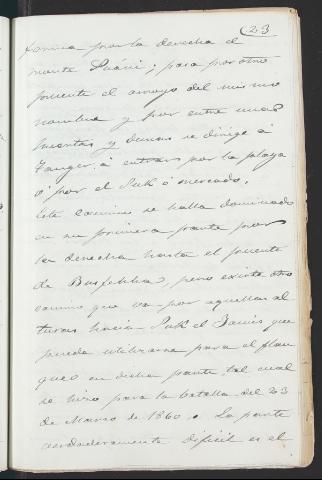 23
forma por la derecha el
monte ; pasa por otro
puente el arroyo del mismo
nombre y por entre unas
huertas y dunas se dirige á
Tanger á entrar por la playa
ó por el Suk ó mercado.
Este camino se halla dominado
en su primera parte por
la derecha hasta el puente
de , pero existe otro
camino que va por aquellas al
turas hacia Suk el que
puede utilizarse para el flan
queo en dicha parte, tal cual
se hizo para la batalla del 23
de Marzo de 1860. La parte
verdaderamente dificil es el